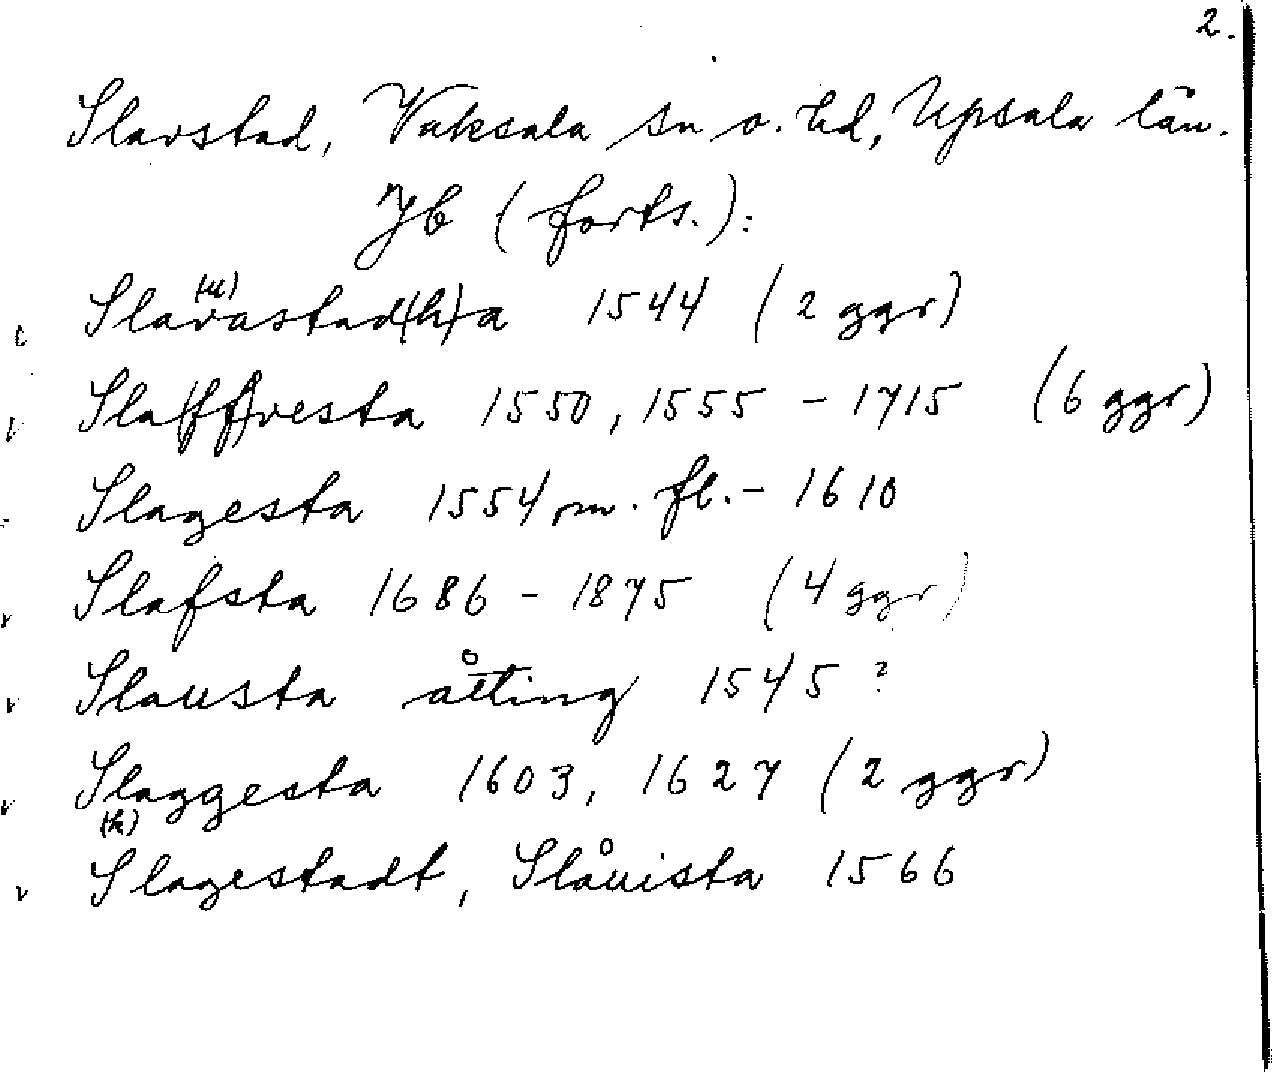 2.
Slavstad, Vaksala sn o. hd, Upsala län.
Jb (forts.):
(u)
v Slavastad(h)a 1544 (2 ggr)
v Sla(ff)vesta 1550, 1555 - 1715 (6 ggr)
- Slagesta 1554 m. fl. - 1610
v Slafsta 1686 - 1875 (4 ggr)
v Slausta åtting 1545 ?
v Slaggesta 1603, 1627 (2 ggr)
(k)
v Slagestadt, Slåuista 1566